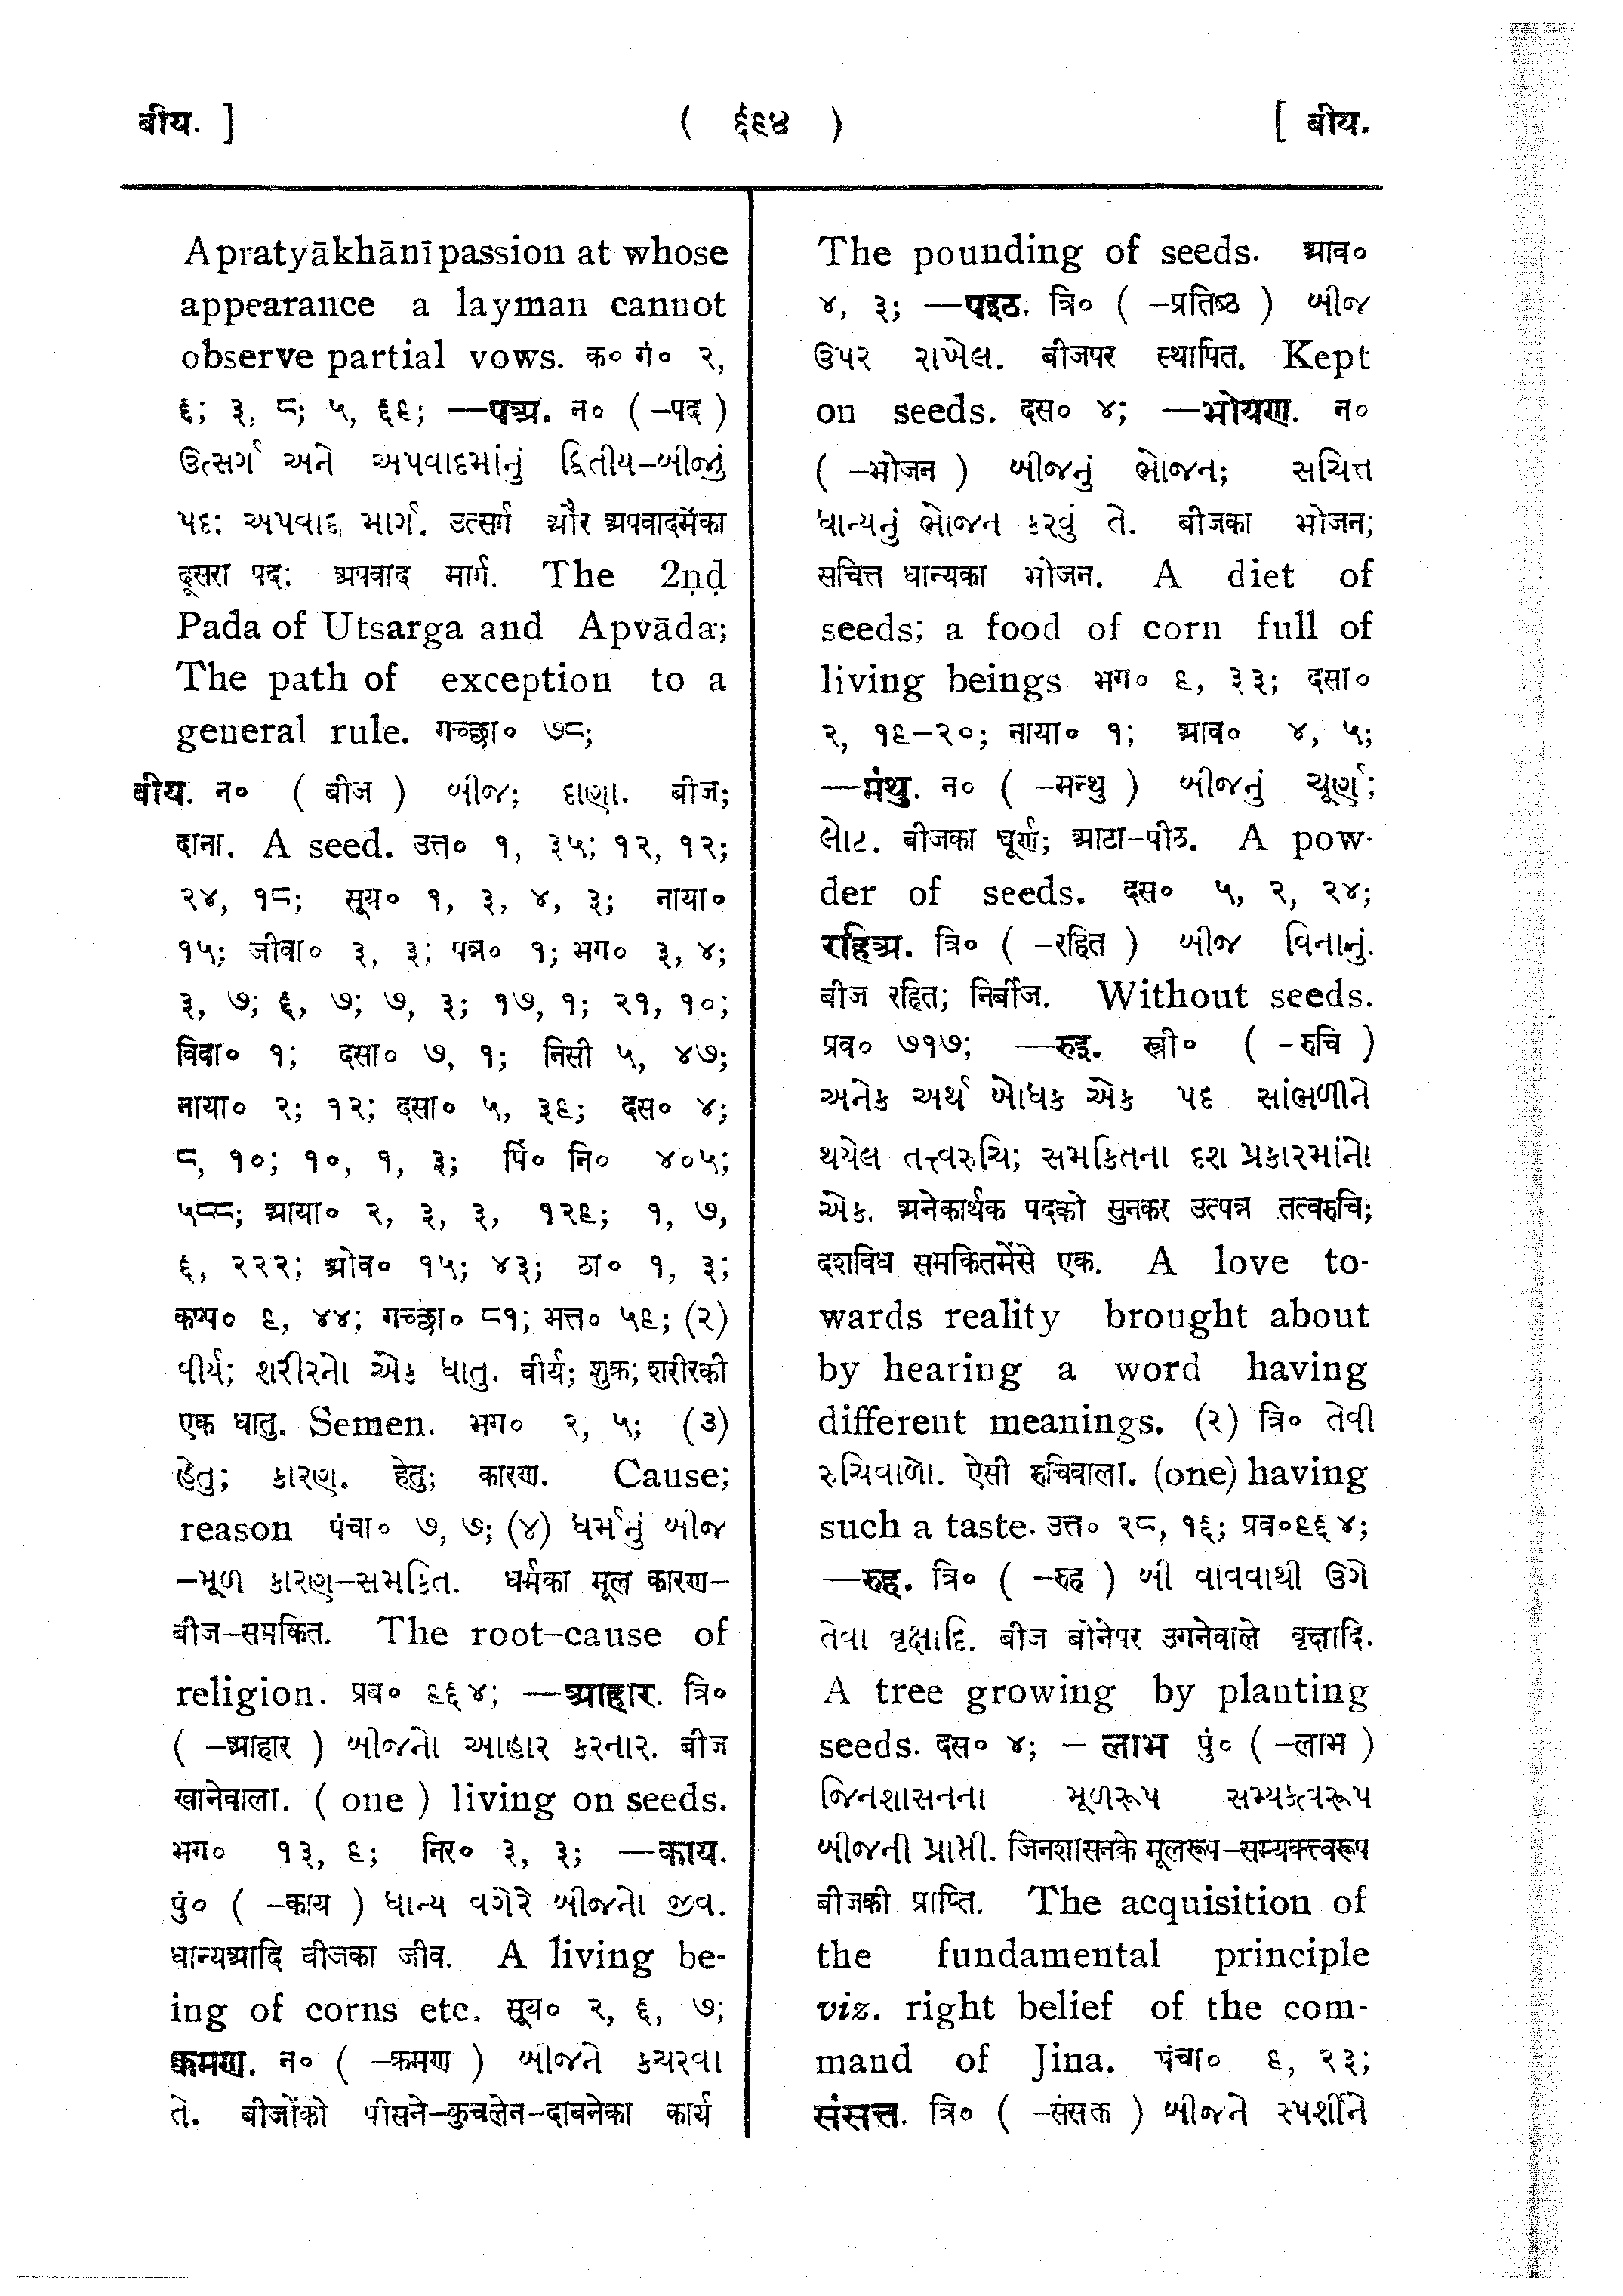 बीय. ] ( ६९४ ) [ बीय.
Apratyākhānī passion at whose
appearance a layman cannot
observe partial vows. क० गं० २,
६; ३, ८; ५, ६९; —पअ. न० ( -पद )
ઉત્સર્ગ અને અપવાદમાંનું દ્વિતીય-બીજું
પદ: અપવાદ માર્ગ. उत्सर्ग और अपवादमेंका
दूसरा पद: अपवाद मार्ग. The 2ṇḍ
Pada of Utsarga and Apvāda;
The path of exception to a
general rule. गच्छा० ७८;
बीय. न० ( बीज ) બીજ; દાણા. बीज;
दाना. A seed. उत्त० १, ३५; १२, १२;
२४, १८; सूय० १, ३, ४, ३; नाया०
१५; जीवा० ३, ३; पन्न० १; भग० ३, ४;
३, ७; ६, ७; ७, ३; १७, १; २१, १०;
विवा० १; दसा० ७, १; निसी ५, ४७;
नाया० २; १२; दसा० ५, ३९; दस० ४;
८, १०; १०, १, ३; पिं० नि० ४०५;
५८८; आया० २, ३, ३, १२९; १, ७,
६, २२२; ओव० १५; ४३; ठा० १, ३;
कप्प० ९, ४४; गच्छा० ८१; भत्त० ५९; (२)
વીર્ય; શરીરનો એક ધાતુ. वीर्य; शुक्र; शरीरकी
एक धातु. Semen. भग० २, ५; (३)
હેતુ; કારણ. हेतु; कारण. Cause;
reason पंचा० ७, ७; (४) ધર્મનું બીજ
-મૂળ કારણ-સમકિત. धर्मका मूल कारण-
बीज-समकित. The root-cause of
religion. प्रव० ९६४; —आहार. त्रि०
( -आहार ) બીજનો આહાર કરનાર. बीज
खानेवाला. ( one ) living on seeds.
भग० १३, ९; निर० ३, ३; —काय.
पुं० ( -काय ) ધાન્ય વગેરે બીજનો જીવ.
धान्यआदि बीजका जीव. A living be-
ing of corns etc. सूय० २, ६, ७;
क्कमण. न० ( -क्रमण ) બીજને કચરવા
તે. बीजोंको पीसने-कुचलेन-दाबनेका कार्य
The pounding of seeds. आव०
४, ३; —पइठ. त्रि० ( -प्रतिष्ठ ) બીજ
ઉપર રાખેલ. बीजपर स्थापित. Kept
on seeds. दस० ४; —भोयण. न०
( -भोजन ) બીજનું ભોજન; સચિત્ત
ધાન્યનું ભોજન કરવું તે. बीजका भोजन;
सचित्त धान्यका भोजन. A diet of
seeds; a food of corn full of
living beings भग० ९, ३३; दसा०
२, १९-२०; नाया० १; आव० ४, ५;
—मंथु. न० ( -मन्थु ) બીજનું ચૂર્ણ;
લોટ. बीजका चूर्ण; आटा-पीठ. A pow-
der of seeds. दस० ५, २, २४;
रहिअ. त्रि० ( -रहित ) બીજ વિનાનું.
बीज रहित; निर्बीज. Without seeds.
प्रव० ७१७; —रुइ. स्त्री० ( -रुचि )
અનેક અર્થ બોધક એક પદ સાંભળીને
થયેલ તત્ત્વરુચિ; સમકિતના દશ પ્રકારમાંનો
એક. अनेकार्थक पदको सुनकर उत्पन्न तत्वरुचि;
दशविध समकितमेंसे एक. A love to-
wards reality brought about
by hearing a word having
different meanings. (२) त्रि० તેવી
રુચિવાળો. ऐसी रुचिवाला. (one) having
such a taste. उत्त० २८, १६; प्रव०९६४;
—रुह. त्रि० ( -रुह ) બી વાવવાથી ઉગે
તેવા વૃક્ષાદિ. बीज बोनेपर उगनेवाले वृक्षादि.
A tree growing by planting
seeds. दस० ४; - लाभ पुं० ( -लाभ )
જિનશાસનના મૂળરૂપ સમ્યક્ત્વરૂપ
બીજની પ્રાપ્તી. जिनशासनके मूलरूप-सम्यक्त्वरूप
बीजकी प्राप्ति. The acquisition of
the fundamental principle
viz. right belief of the com-
mand of Jina. पंचा० ९, २३;
संसत्त. त्रि० ( -संसक्त ) બીજને સ્પર્શીને